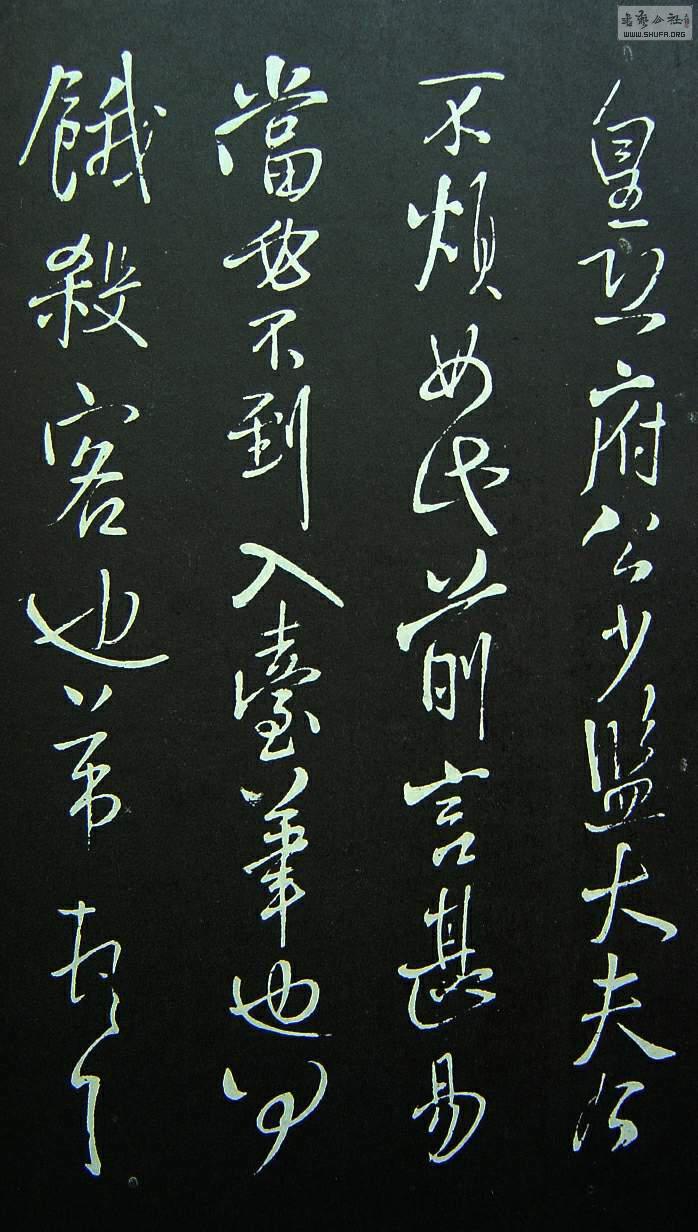 皇恐府公少監大夫公
不煩如此前言甚易
當不到入臺筆也
餓殺客也弟頓首
書藝公社
WWW.SHUFA.ORG